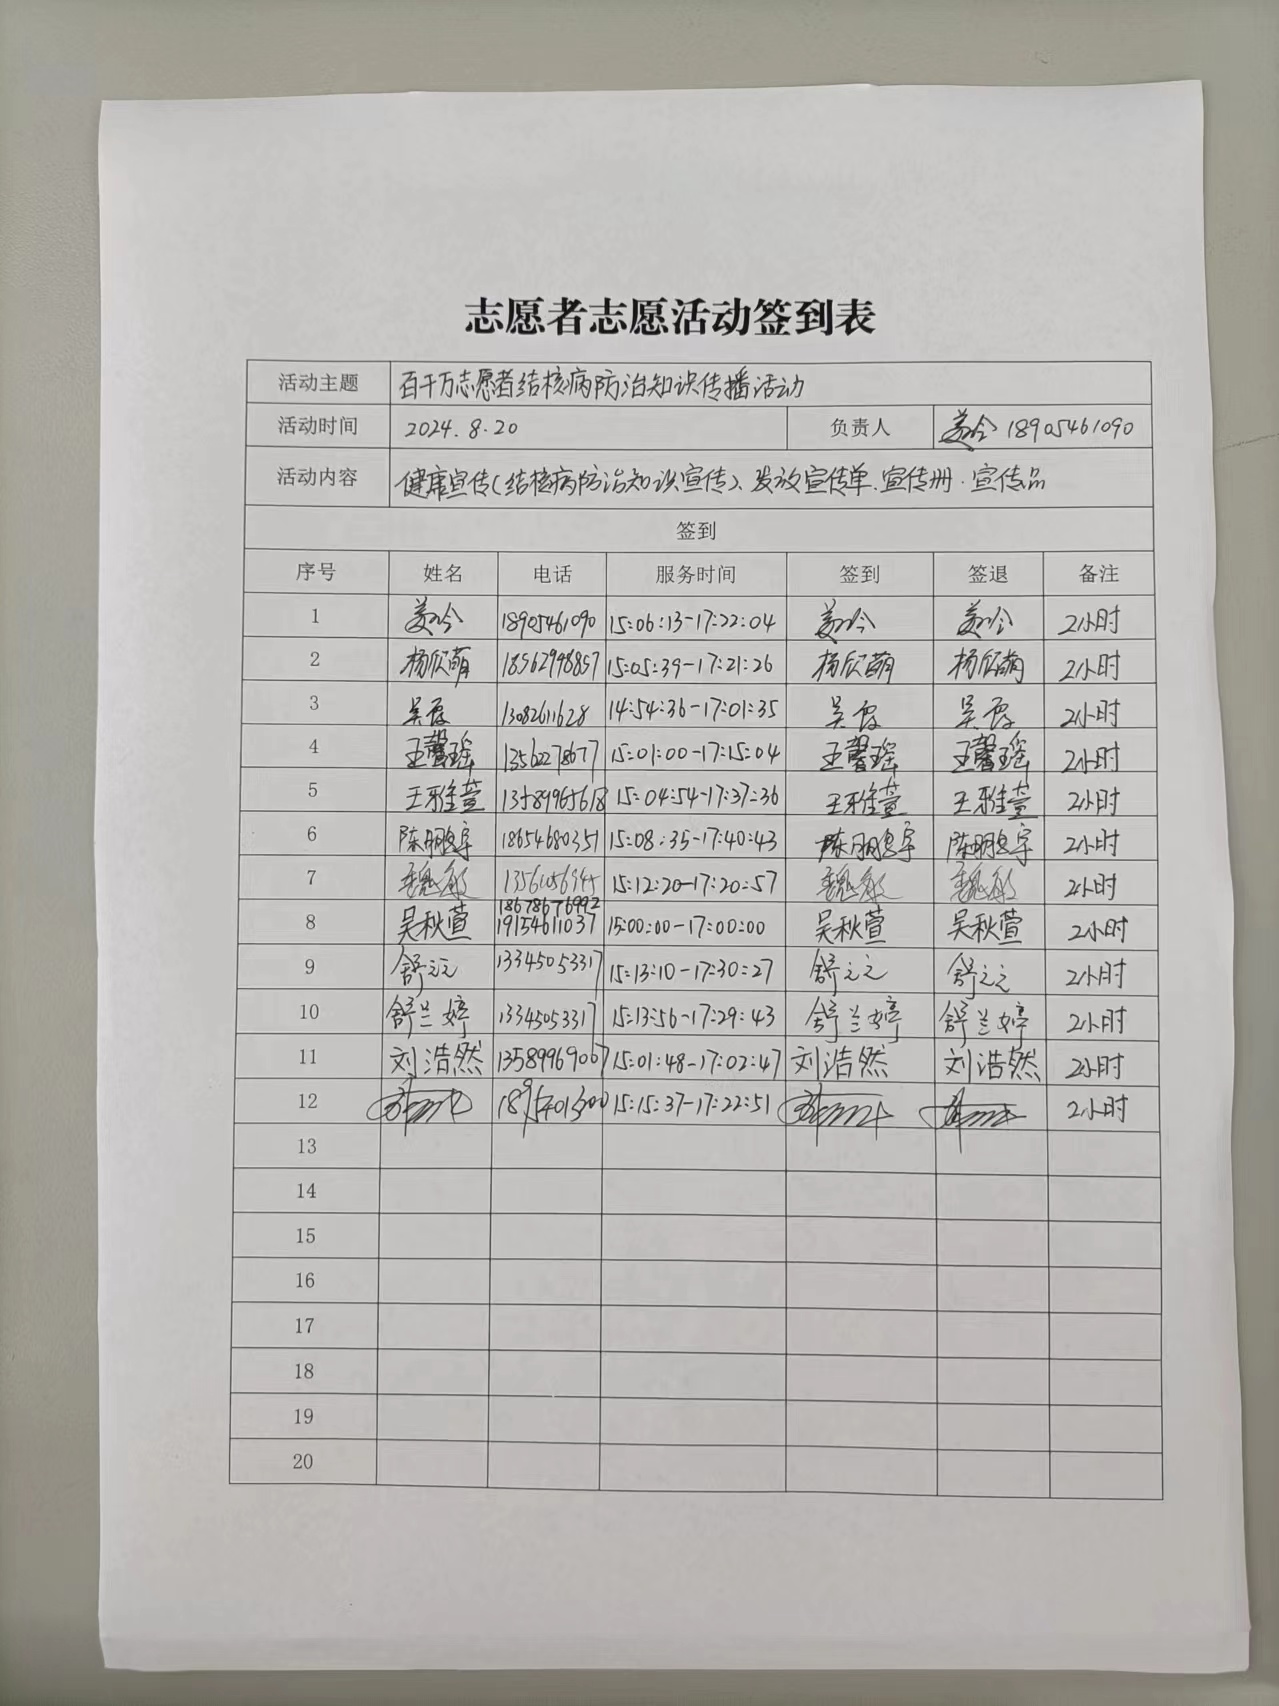 志愿者志愿活动签到表
活动主题 百千万志愿者结核病防治知识传播活动
活动时间 2024.8.20 负责人 18905461090
活动内容 健康宣传(结核病防治知识宣传)、发放宣传单、宣传册、宣传品
签到
序号 姓名 电话 服务时间 签到 签退 备注
1 18905461090 15:06:13-17:22:04 2小时
2 杨欣萌 18562998857 15:05:39-17:21:26 杨欣萌 杨欣萌 2小时
3 吴霞 13082611628 14:54:36-17:01:35 吴霞 吴霞 2小时
4 王馨瑶 13562278677 15:01:00-17:15:04 王馨瑶 王馨瑶 2小时
5 王雅萱 13589965618 15:04:54-17:37:36 王雅萱 王雅萱 2小时
6 陈鹏宇 18654680351 15:08:35-17:40:43 陈鹏宇 陈鹏宇 2小时
7 魏敏 13561056945 15:12:20-17:20:57 魏敏 魏敏 2小时
18678676992
8 吴秋萱 19154611037 15:00:00-17:00:00 吴秋萱 吴秋萱 2小时
9 舒之元 13345053317 15:13:10-17:30:27 舒之元 舒之元 2小时
10 舒兰婷 13345053317 15:13:56-17:29:43 舒兰婷 舒兰婷 2小时
11 刘浩然 13589969067 15:01:48-17:02:47 刘浩然 刘浩然 2小时
12 15:15:37-17:22:51 2小时
13
14
15
16
17
18
19
20